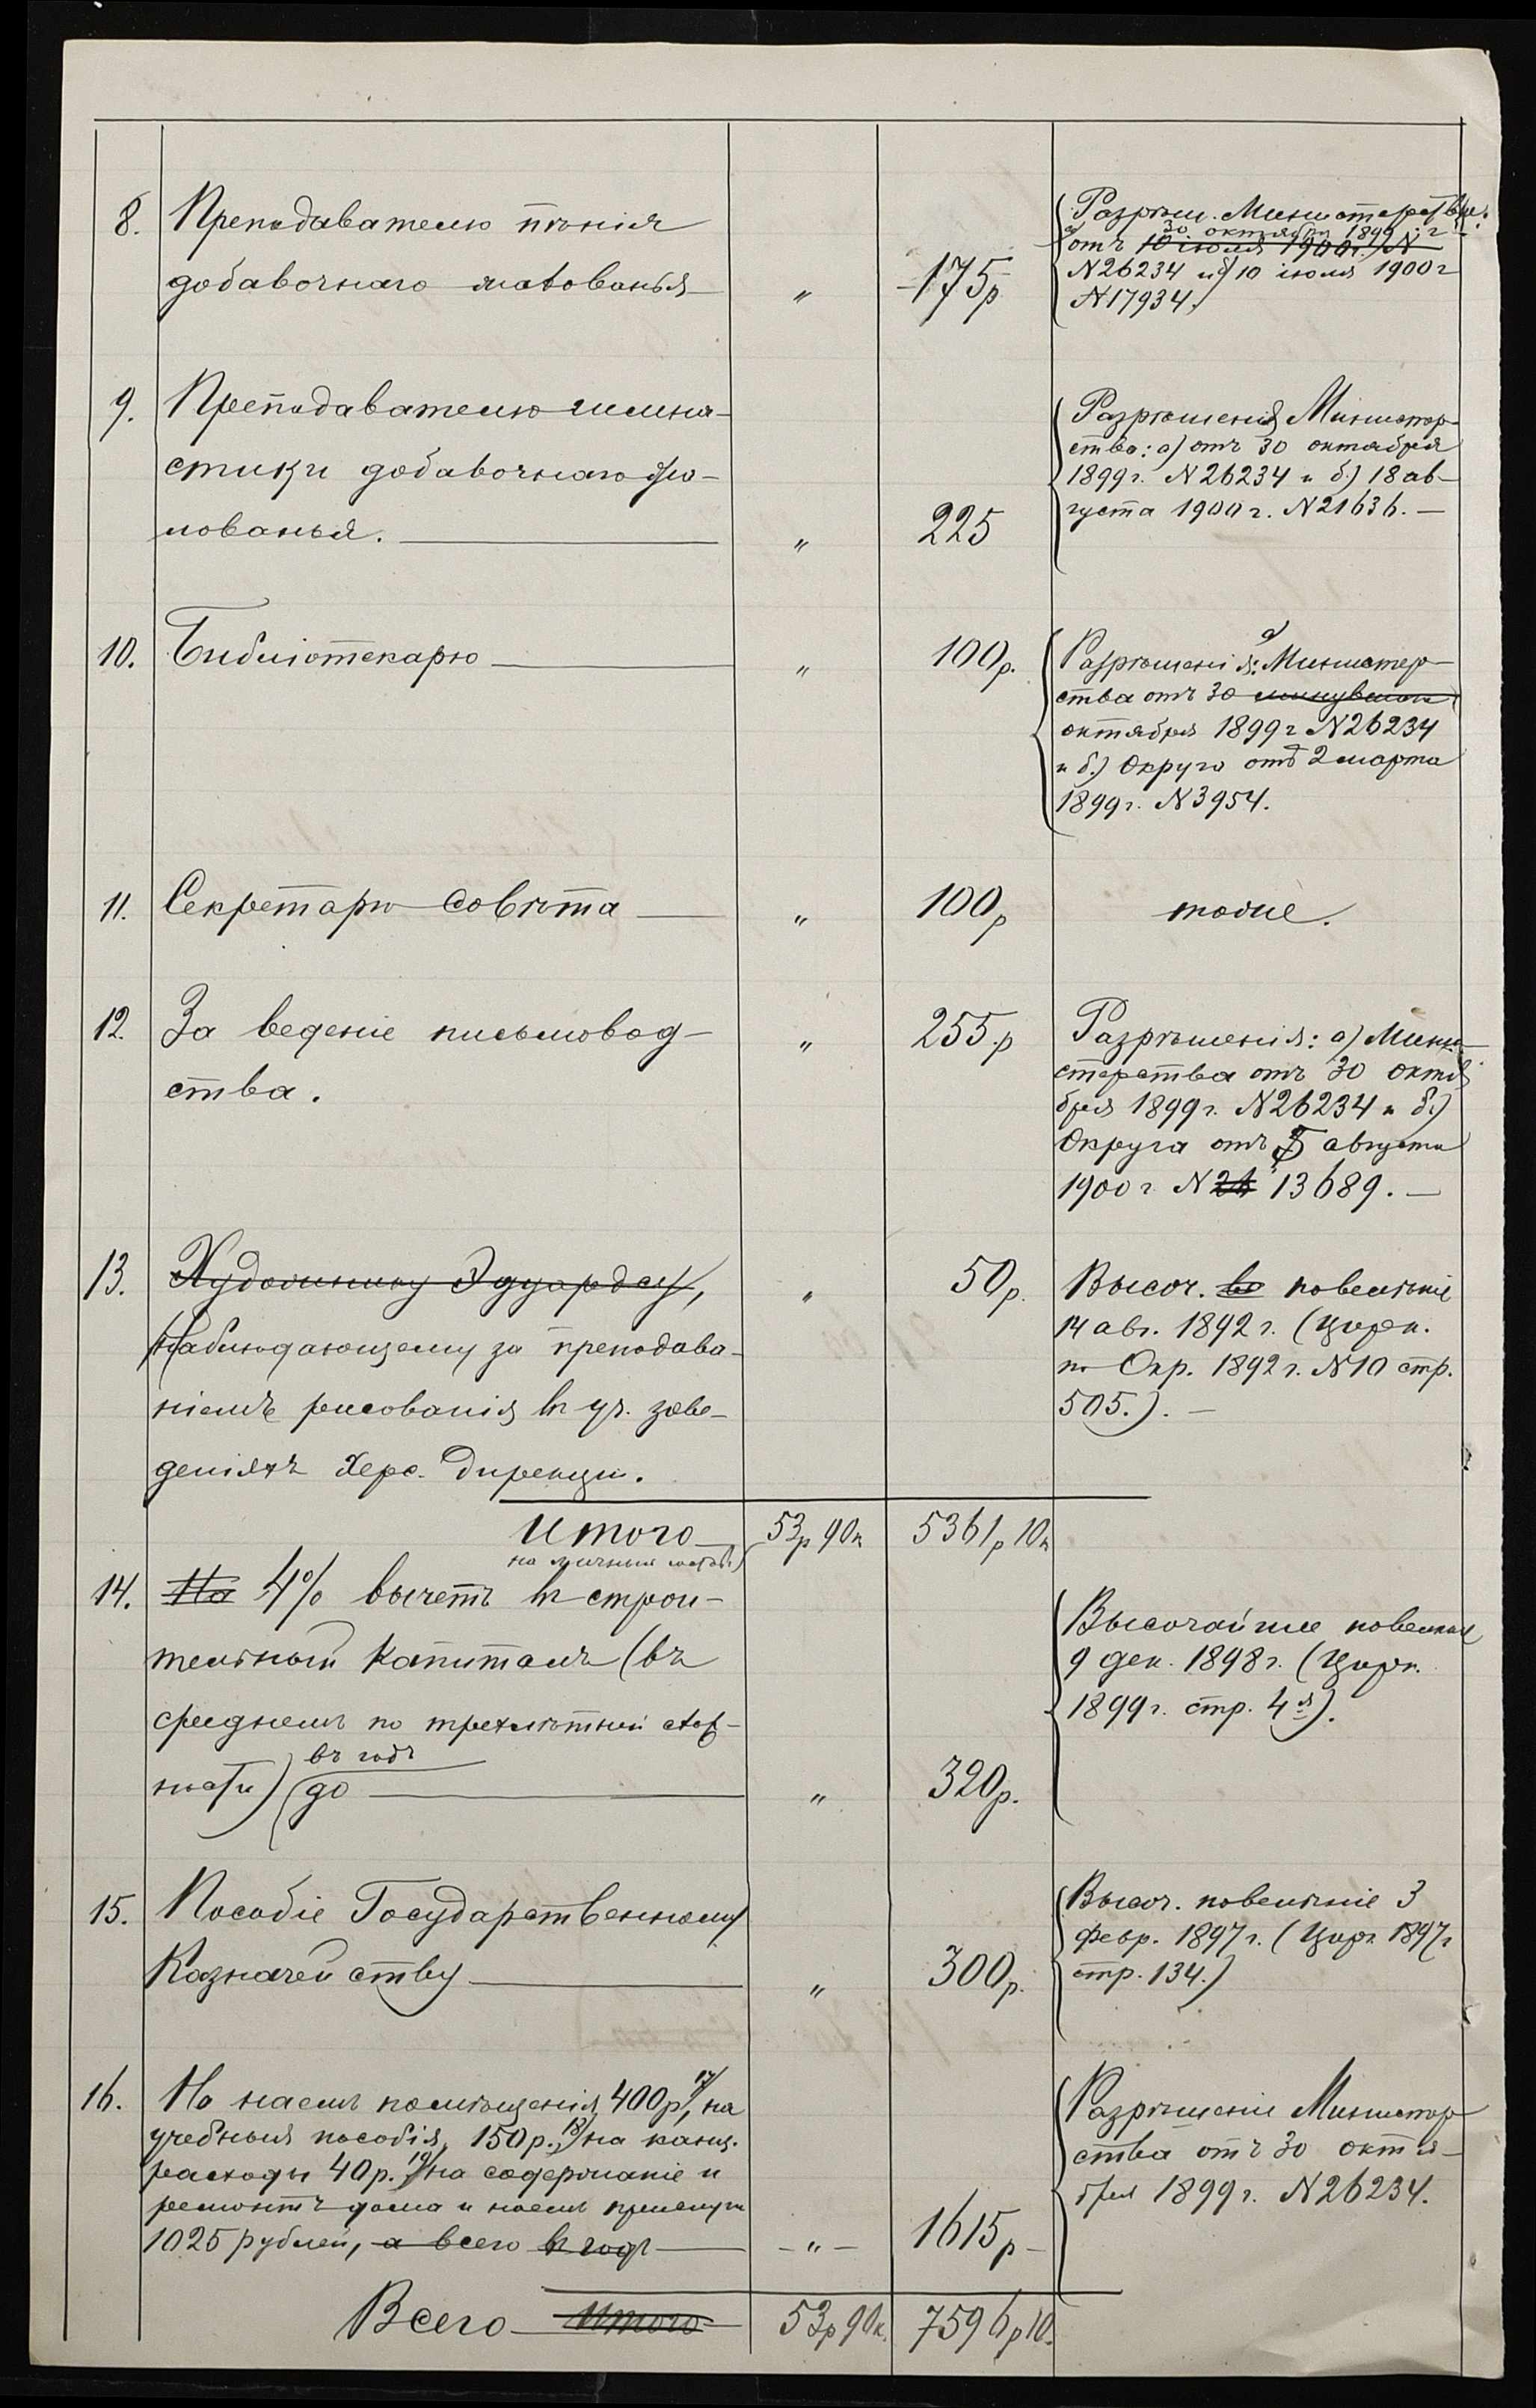 8. Преподавателю пѣнія
добавочнаго жалованья „ 175р
Разрѣш. Министерства:
30 октября 1899 г
а) отъ 10 іюля 1900 г. N
N26234 и б) 10 іюля 1900 г
N17934.
9. Преподавателю гимна-
стики добавочнаго жа-
лованья. „ 225
Разрѣшенія Министер-
ства: а) отъ 30 октября
1899 г. N26234 и б.) 18 ав-
густа 1900 г. N21636. —
10. Библіотекарю „ 100р.
а)
Разрѣшенія: Министер-
ства отъ 30 минувшаго
октября 1899 г N26234
и б.) Округа отъ 2 марта
1899 г. N3954.
11. Секретарю Совѣта „ 100р тоже.
12. За веденіе письмовод-
ства. „ 255.р
Разрѣшенія: а) Мини-
стерства отъ 30 октя
бря 1899 г. N26234 и б.)
Округа отъ 5 августа
1900 г N 26 13689. —
13. Художнику Эдуардсу,
Наблюдающему за преподава-
ніемъ рисованія въ уч. заве-
деніяхъ Херс. Дирекции. „ 50р.
Высоч. во повелѣніе
14 авг. 1892 г. (Цирк.
по Окр. 1892 г. N10 стр.
505.). —
Итого 53р 90к 5361р 10к
на личный составъ)
14. На 4% вычетъ въ строи-
тельный капиталъ (въ
среднемъ по трехлѣтней слож-
въ годъ
ности) (до „ 320р.
Высочайшее повелѣніе
9 дек. 1898 г. (Цирк.
1899 г. стр. 4я).
15. Пособіе Государственному
Казначейству „ 300р.
Высоч. повелѣніе 3
февр. 1897 г. (Цирк 1897 г
стр. 134.)
16. На наемъ помѣщенія 400р, 17) на
учебныя пособія, 150р., 18) на канц.
расходы 40р. 19) на содержаніе и
ремонтъ дома и наемъ прислуги
1025 рублей, а всего въ годъ — „ — 1615р
Разрѣшеніе Министер
ства отъ 30 октя-
бря 1899 г. N26234.
Всего Итого 53р 90к. 7596р 10.